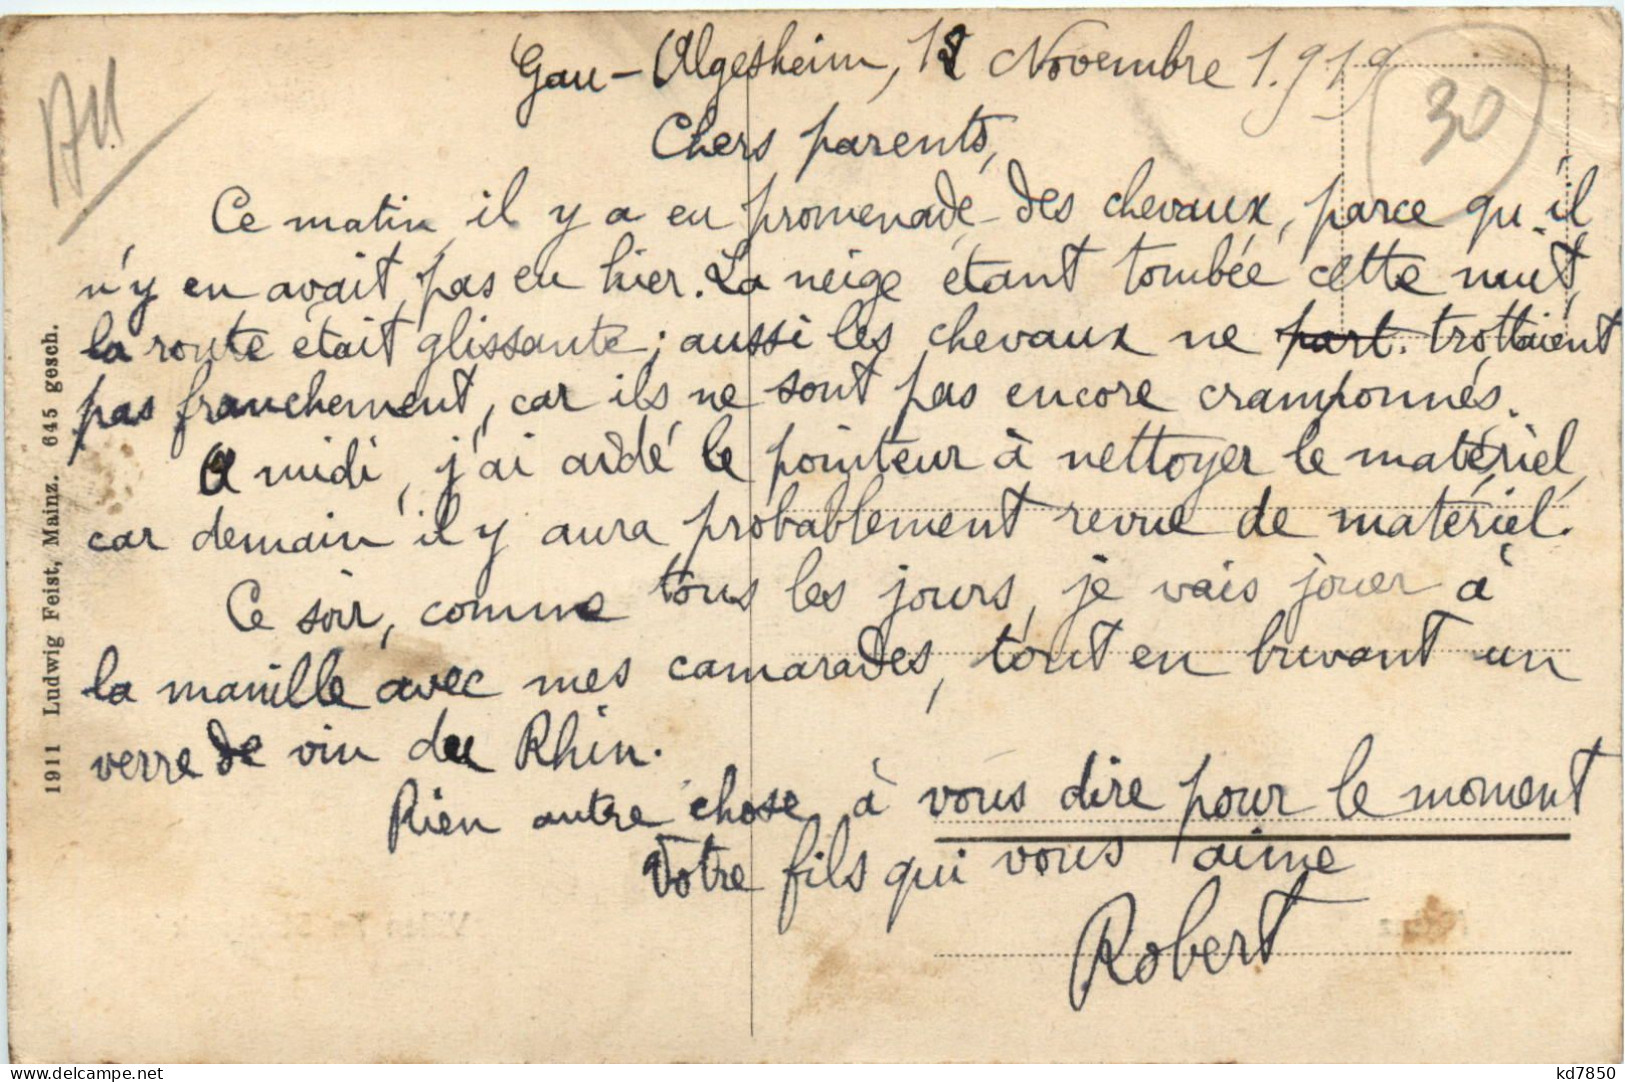 Gau-Algesheim, 12 Novembre 1.919
30
Chers parents,
Ce matin, il y a eu promenade des chevaux, parce qu'il
n'y en avait pas eu hier. La neige étant tombée cette nuit,
la route était glissante; aussi les chevaux ne part. trottaient
pas franchement, car ils ne sont pas encore cramponnés.
A midi, j'ai aidé le pointeur à nettoyer le matériel,
car demain il y aura probablement revue de matériel.
Ce soir, comme tous les jours, je vais jouer à
la manille avec mes camarades, tout en buvant un
verre de vin du Rhin.
Rien autre chose à vous dire pour le moment
Votre fils qui vous aime
Robert
1911 Ludwig Feist, Mainz. 645 gesch.
kd7850